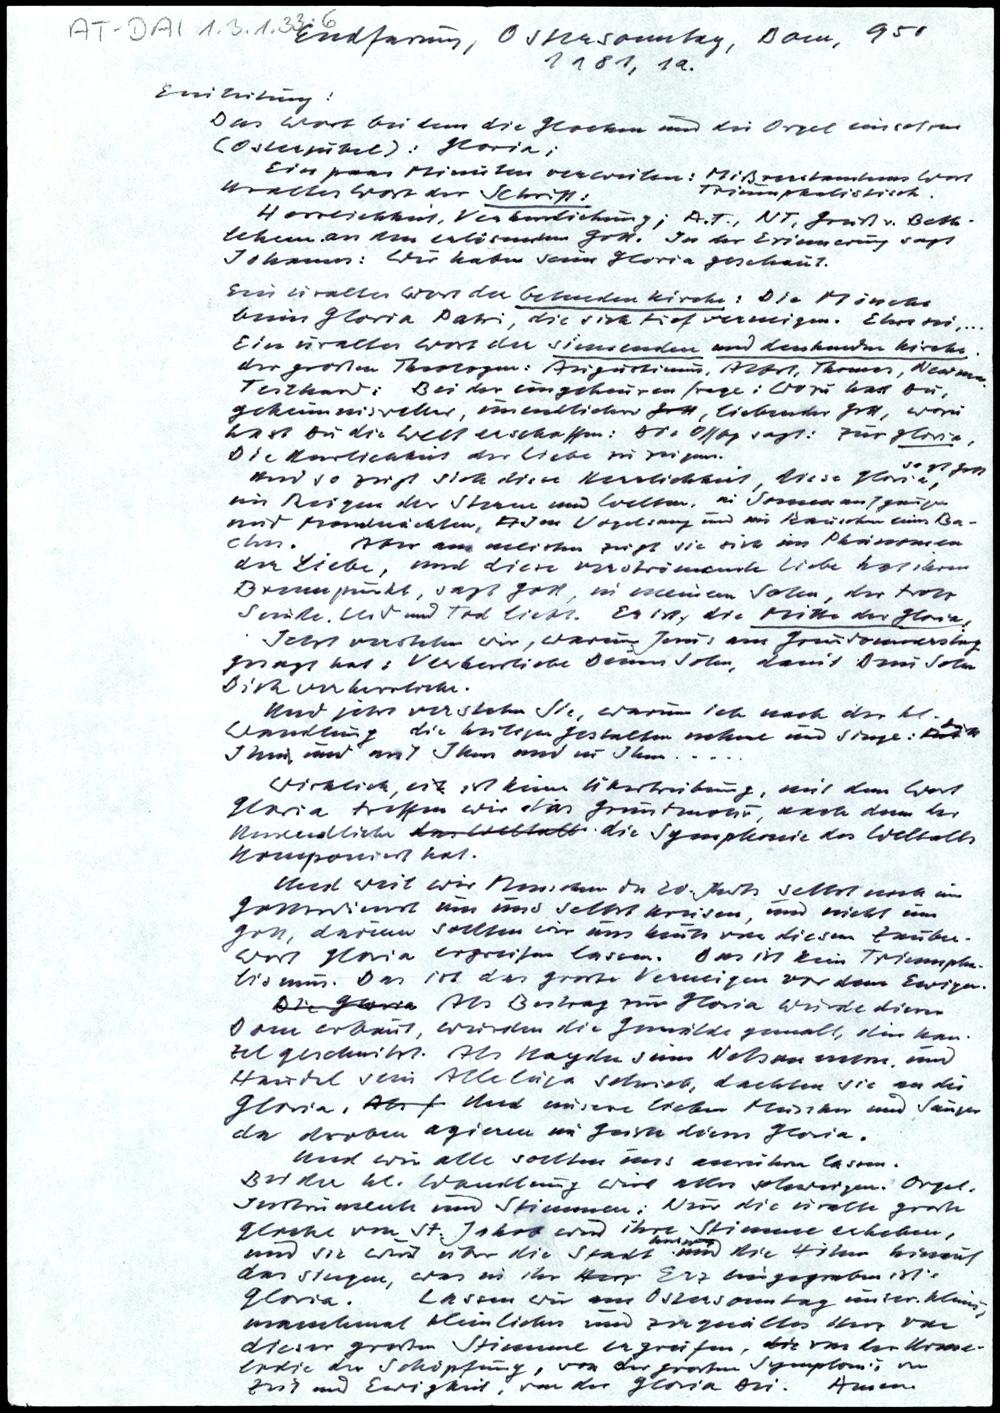 AT-DAI 1.3.1.33.6
Endfassung, Ostersonntag, Dom, 9 50
1981, 1a.
Einleitung:
Das Wort bei dem die Glocken und die Orgel einsetzen
(Osterjubel): Gloria;
Ein paar Minuten verweilen: Mißverstandenes Wort
Triumphalistisch.
Uraltes Wort der Schrift:
Herrlichkeit, Verherrlichung; A.T., NT, Gruß v. Beth-
lehem an den erlösenden Gott. In der Erinnerung sagt
Johannes: Wir haben seine Gloria geschaut.
Ein uraltes Wort der betenden Kirche: Die Mönche
beim Gloria Patri, die sich tief verneigen. Ehre sei,...
Ein uraltes Wort der sinnenden und denkenden Kirche.
der großen Theologen: Augustinus, Albert, Thomas, Newman
Teilhard: Bei der ungeheuren Frage: Wozu hast Du,
geheimnisvoller, unendlicher Gott, liebender Gott, wozu
hast Du die Welt erschaffen: Die Offbg sagt: Zur Gloria,
Die Herrlichkeit der Liebe zu zeigen.
Und so zeigt sich diese Herrlichkeit, diese Gloria, sagt Gott
im Reigen der Sterne und Welten, in Sonnenaufgängen
und Mondnächten, im Vogelsang und im Rauschen eines Ba-
ches. Aber am meisten zeigt sie sich im Phänomen
der Liebe, und diese verströmende Liebe hat ihren
Brennpunkt, sagt Gott, in meinem Sohn, der trotz
Sünde, Leid und Tod liebt. Er ist die Mitte der Gloria,
Jetzt verstehen wir, warum Jesus am Gründonnerstag
gesagt hat: Verherrliche Deinen Sohn, damit Dein Sohn
Dich verherrliche.
Und jetzt verstehen Sie, warum ich nach der hl.
Wandlung die heiligen Gestalten nehme und singe: Durch
Ihn und mit Ihm und in Ihm.....
Wirklich, es ist keine Übertreibung, mit dem Wort
Gloria treffen wir das Grundmotiv, nach dem der
Unendliche das Weltall die Symphonie des Weltalls
komponiert hat.
Und weil wir Menschen des 20. Jhdts selbst noch im
Gottesdienst um uns selbst kreisen, und nicht um
Gott, darum sollten wir uns heute von diesem Zauber-
wort Gloria ergreifen lassen. Das ist kein Triumpha-
lismus. Das ist das große Verneigen vor dem Ewigen.
Die Gloria Als Beitrag zur Gloria wurde dieser
Dom erbaut, wurden die Gemälde gemalt, die Kan-
zel geschnitzt. Als Haydn seine Nelsonmesse und
Händel sein Alleluja schrieb, dachten sie an die
Gloria. Und unsere lieben Musiker und Sänger
da droben agieren im Geiste dieser Gloria.
Und wir alle sollten uns anrühren lassen.
Bei der hl. Wandlung wird alles schweigen. Orgel,
Instrumente und Stimmen: Nur die uralte große
Glocke von St. Jakob wird ihre Stimme erheben,
und sie wird über die Stadt hinweg und die Höhen hinauf
das singen, was in ihr Herz Erz eingegraben ist:
Gloria. Lassen wir am Ostersonntag unser kleines,
manchmal kleinliches und zerquältes Herz von
dieser großen Stimme ergreifen, die von der Kome-
endie der Schöpfung, von der großen Symphonie von
Zeit und Ewigkeit, von der Gloria Dei. Amen.